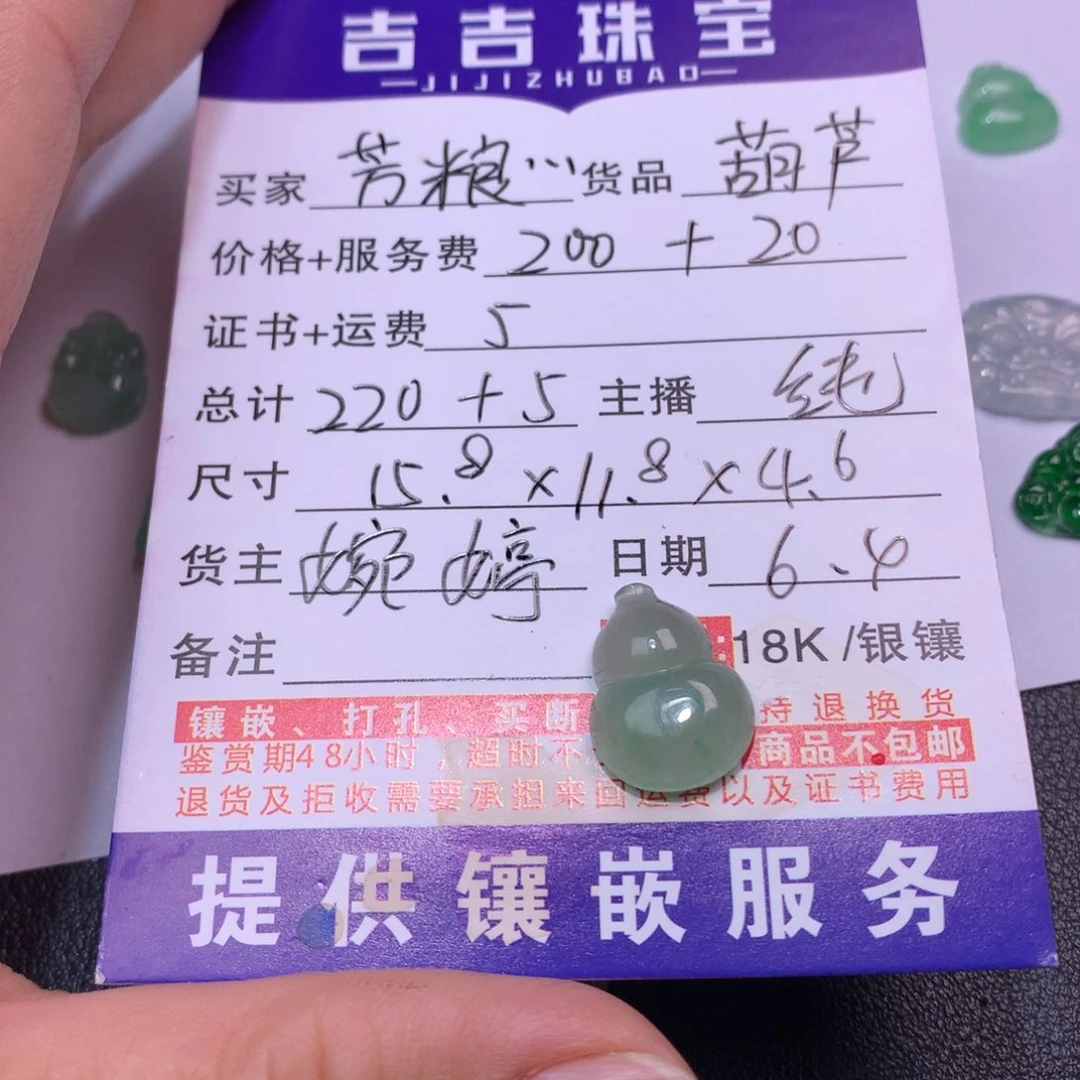 吉吉珠宝
JIJIZHUBAO
买家 芳粮… 货品 葫芦
价格+服务费 200 + 20
证书+运费 5
总计 220 + 5 主播 纯
尺寸 15.8 x 11.8 x 4.6
货主 婉婷 日期 6.4
备注 :18K /银镶
镶嵌、打孔、买断 持退换货
鉴赏期48小时,超时不 商品不包邮
退货及拒收需要承担来回运费以及证书费用
提供镶嵌服务